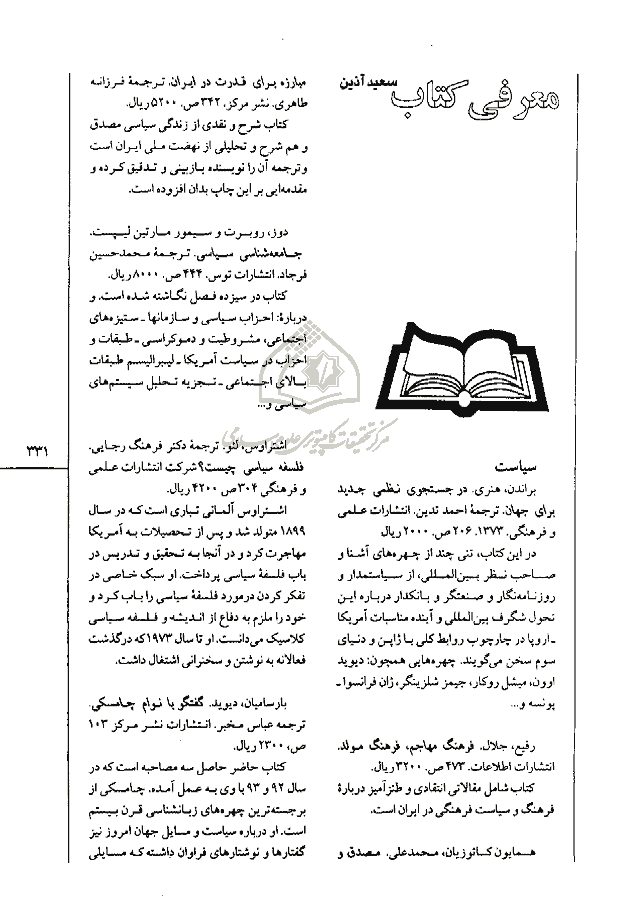 معرفی کتاب
سعید آذین
سیاست
براندن، هنری. در جستجوی نظمی جدید
برای جهان. ترجمهٔ احمد تدین. انتشارات علمی
و فرهنگی. ۱۳۷۳. ۲۰۶ ص. ۲۰۰۰ ریال
در این کتاب، تنی چند از چهره‌های آشنا و
صاحب نظر بین‌المللی، از سیاستمدار و
روزنامه‌نگار و صنعتگر و بانکدار درباره این
تحول شگرف بین‌المللی و آینده مناسبات آمریکا
ـ اروپا در چارچوب روابط کلی با ژاپن و دنیای
سوم سخن می‌گویند. چهره‌هایی همچون: دیوید
اوون، میشل روکار، جیمز شلزینگر، ژان فرانسوا ـ
پونسه و...
رفیع، جلال. فرهنگ مهاجم، فرهنگ مولد.
انتشارات اطلاعات. ۴۷۳ ص. ۳۲۰۰ ریال.
کتاب شامل مقالاتی انتقادی و طنزآمیز دربارهٔ
فرهنگ و سیاست فرهنگی در ایران است.
همایون کاتوزیان، محمدعلی. مصدق و
مبارزه برای قدرت در ایران. ترجمهٔ فرزانه
طاهری. نشر مرکز. ۳۴۲ ص. ۵۲۰۰ ریال.
کتاب شرح و نقدی از زندگی سیاسی مصدق
و هم شرح و تحلیلی از نهضت ملی ایران است
و ترجمه آن را نویسنده بازبینی و تدقیق کرده و
مقدمه‌ایی بر این چاپ بدان افزوده است.
دوز، روبرت و سیمور مارتین لیپست.
جامعه‌شناسی سیاسی. ترجمهٔ محمدحسین
فرجاد. انتشارات توس. ۴۴۴ ص. ۸۰۰۰ ریال.
کتاب در سیزده فصل نگاشته شده است. و
دربارهٔ: احزاب سیاسی و سازمانها ـ ستیزه‌های
اجتماعی، مشروطیت و دموکراسی ـ طبقات و
احزاب در سیاست آمریکا ـ لیبرالیسم طبقات
بالای اجتماعی ـ تجزیه تحلیل سیستم‌های
سیاسی و...
مرکز تحقیقات کامپیوتری علوم اسلامی
۳۳۱
اشتراوس، لئو. ترجمهٔ دکتر فرهنگ رجایی.
فلسفه سیاسی چیست؟ شرکت انتشارات علمی
و فرهنگی ۳۰۴ ص. ۴۲۰۰ ریال.
اشتراوس آلمانی تباری است که در سال
۱۸۹۹ متولد شد و پس از تحصیلات به آمریکا
مهاجرت کرد و در آنجا به تحقیق و تدریس در
باب فلسفهٔ سیاسی پرداخت. او سبک خاصی در
تفکر کردن درمورد فلسفهٔ سیاسی را باب کرد و
خود را ملزم به دفاع از اندیشه و فلسفه سیاسی
کلاسیک می‌دانست. او تا سال ۱۹۷۳ که درگذشت
فعالانه به نوشتن و سخنرانی اشتغال داشت.
بارسامیان، دیوید. گفتگو با نوام چامسکی.
ترجمه عباس مخبر. انتشارات نشر مرکز ۱۰۳
ص. ۲۳۰۰ ریال.
کتاب حاضر حاصل سه مصاحبه است که در
سال ۹۲ و ۹۳ با وی به عمل آمده. چامسکی از
برجسته‌ترین چهره‌های زبانشناسی قرن بیستم
است. او درباره سیاست و مسایل جهان امروز نیز
گفتارها و نوشتارهای فراوان داشته که مسایلی